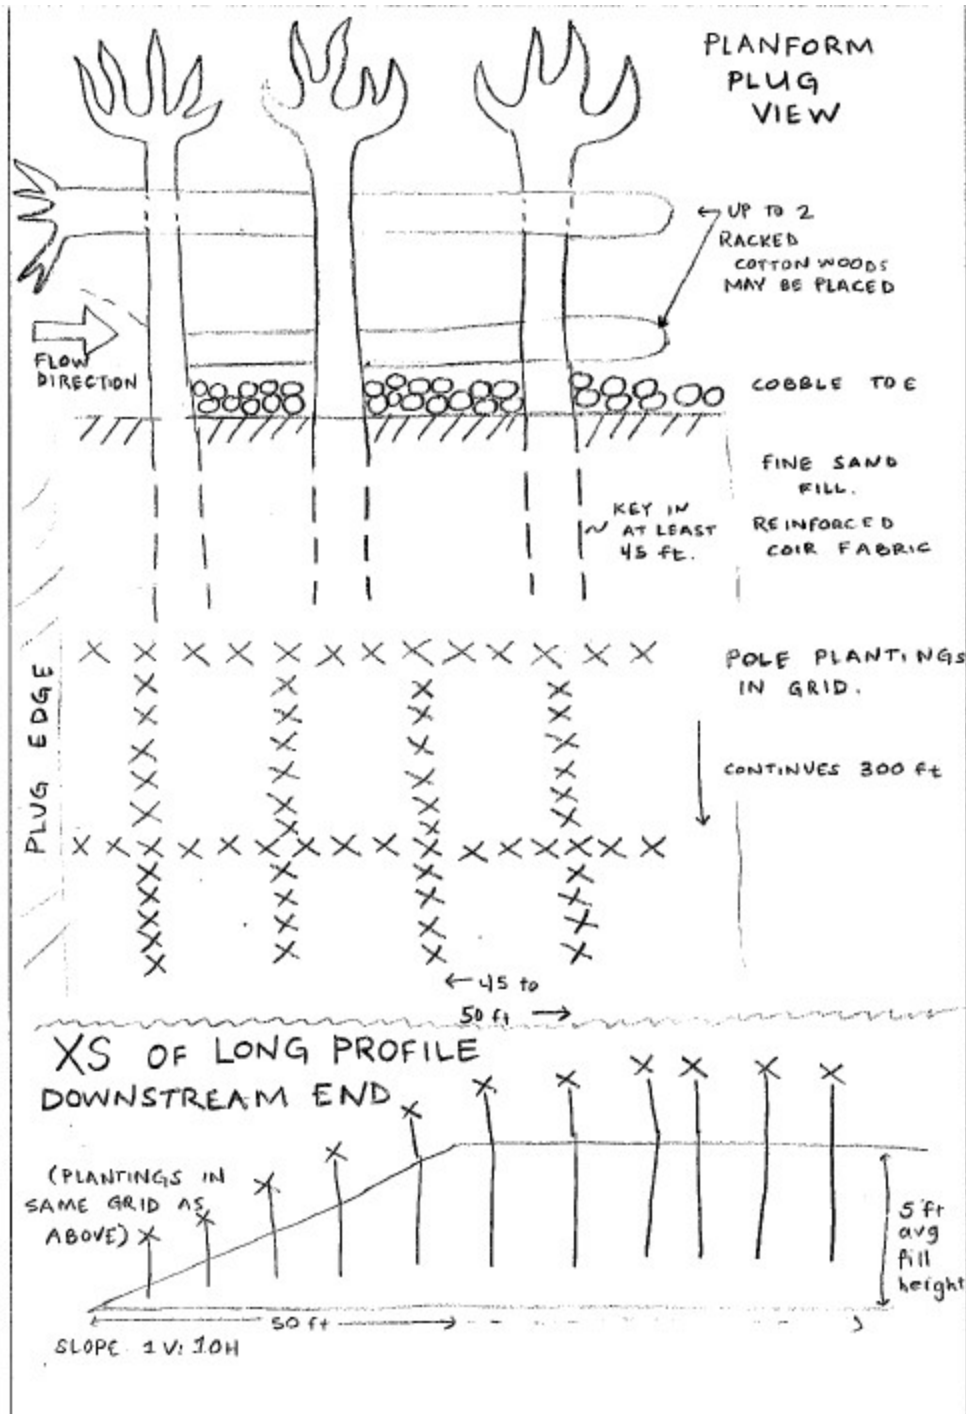 PLANFORM
PLUG
VIEW
← UP TO 2
RACKED
COTTON WOODS
MAY BE PLACED
FLOW
DIRECTION
COBBLE TOE
FINE SAND
FILL.
REINFORCED
COIR FABRIC
KEY IN
~ AT LEAST
45 ft.
PLUG EDGE
POLE PLANTINGS
IN GRID.
CONTINUES 300 ft
← 45 to
50 ft →
XS OF LONG PROFILE
DOWNSTREAM END
(PLANTINGS IN
SAME GRID AS
ABOVE)
5 ft
avg
fill
height
50 ft
SLOPE 1V:10H